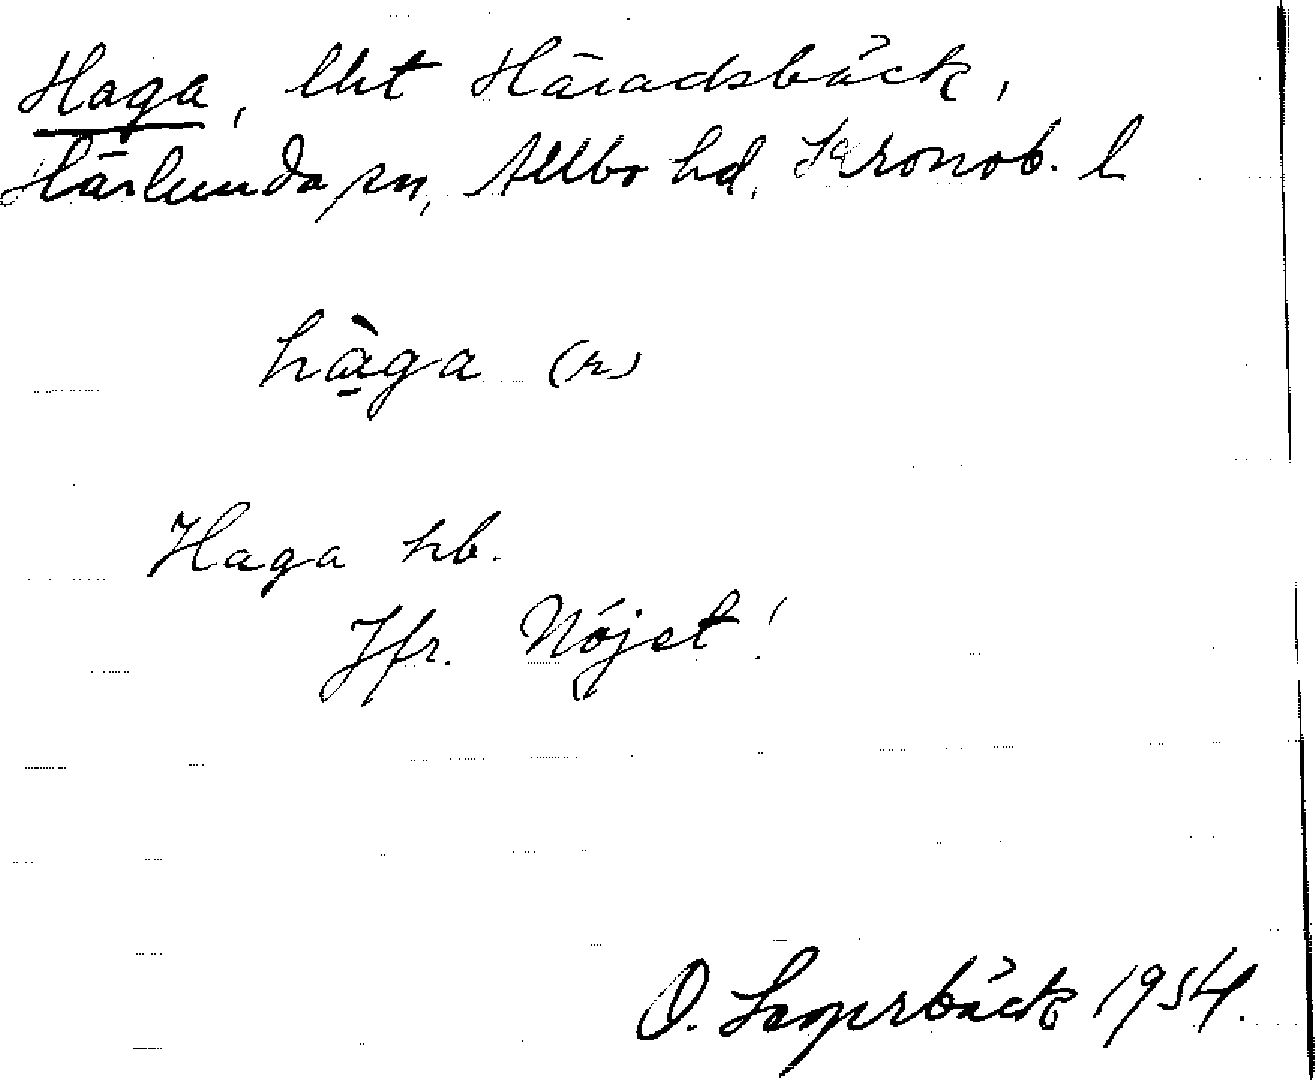 Haga, lht Häradsbäck,
Härlunda sn, Allbo hd, Kronob. l
hàga (n)
Haga hb.
Jfr. Nöjet!
O. Lagerbäck 1954.